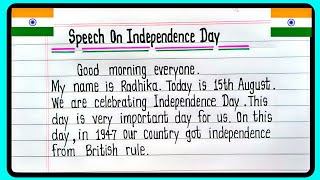 Speech On Independence Day
Good morning everyone.
My name is Radhika. Today is 15th August.
We are celebrating Independence Day. This
day is very important day for us. On this
day, in 1947 our country got independence
from British rule.